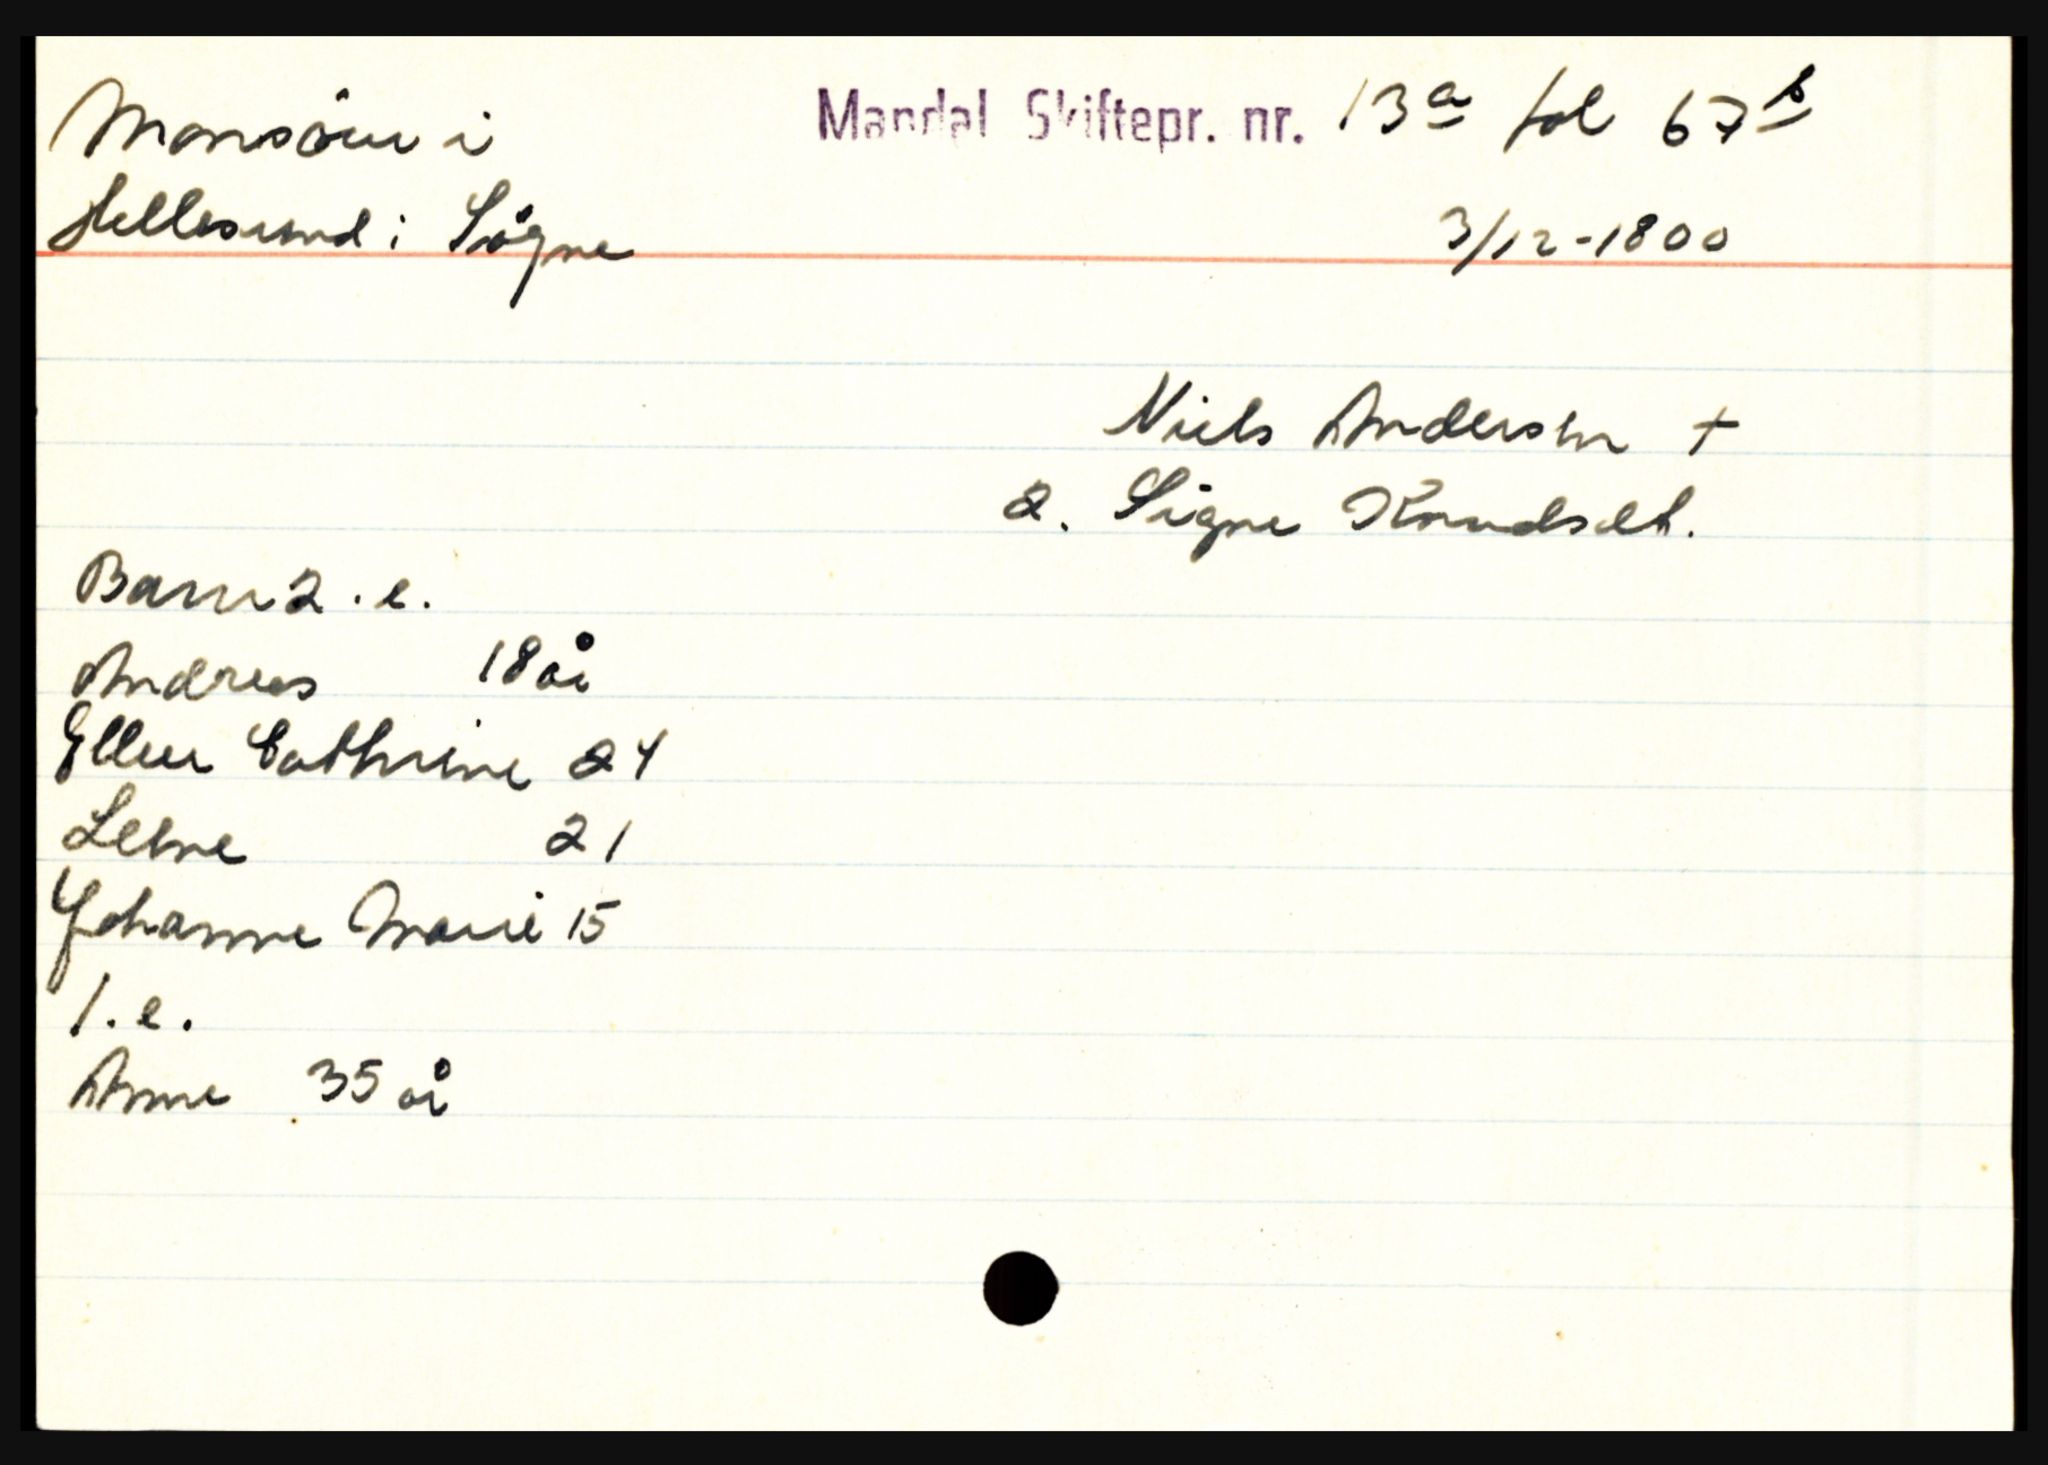 Monsöen i
Mandal Skiftepr. nr. 13a fol 67b
Hellesund i Sögne
3/12-1800
Niels Andersen +
2. Signe Knudsdt.
Barn 2. e.
Andreas 18 år
Ellen Cathrine 24
Lene 21
Johanne Marie 15
1. e.
Anne 35 år